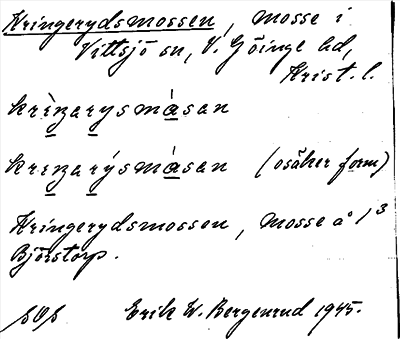 Kringerydsmossen, mosse i
Vittsjö sn, V. Göinge hd,
Krist. l.
krìŋarysmásan
kriŋarýsmásan (osäker form)
Kringerydsmossen, mosse å 1³
Björstorp.
Erik W. Bergenrud 1945.